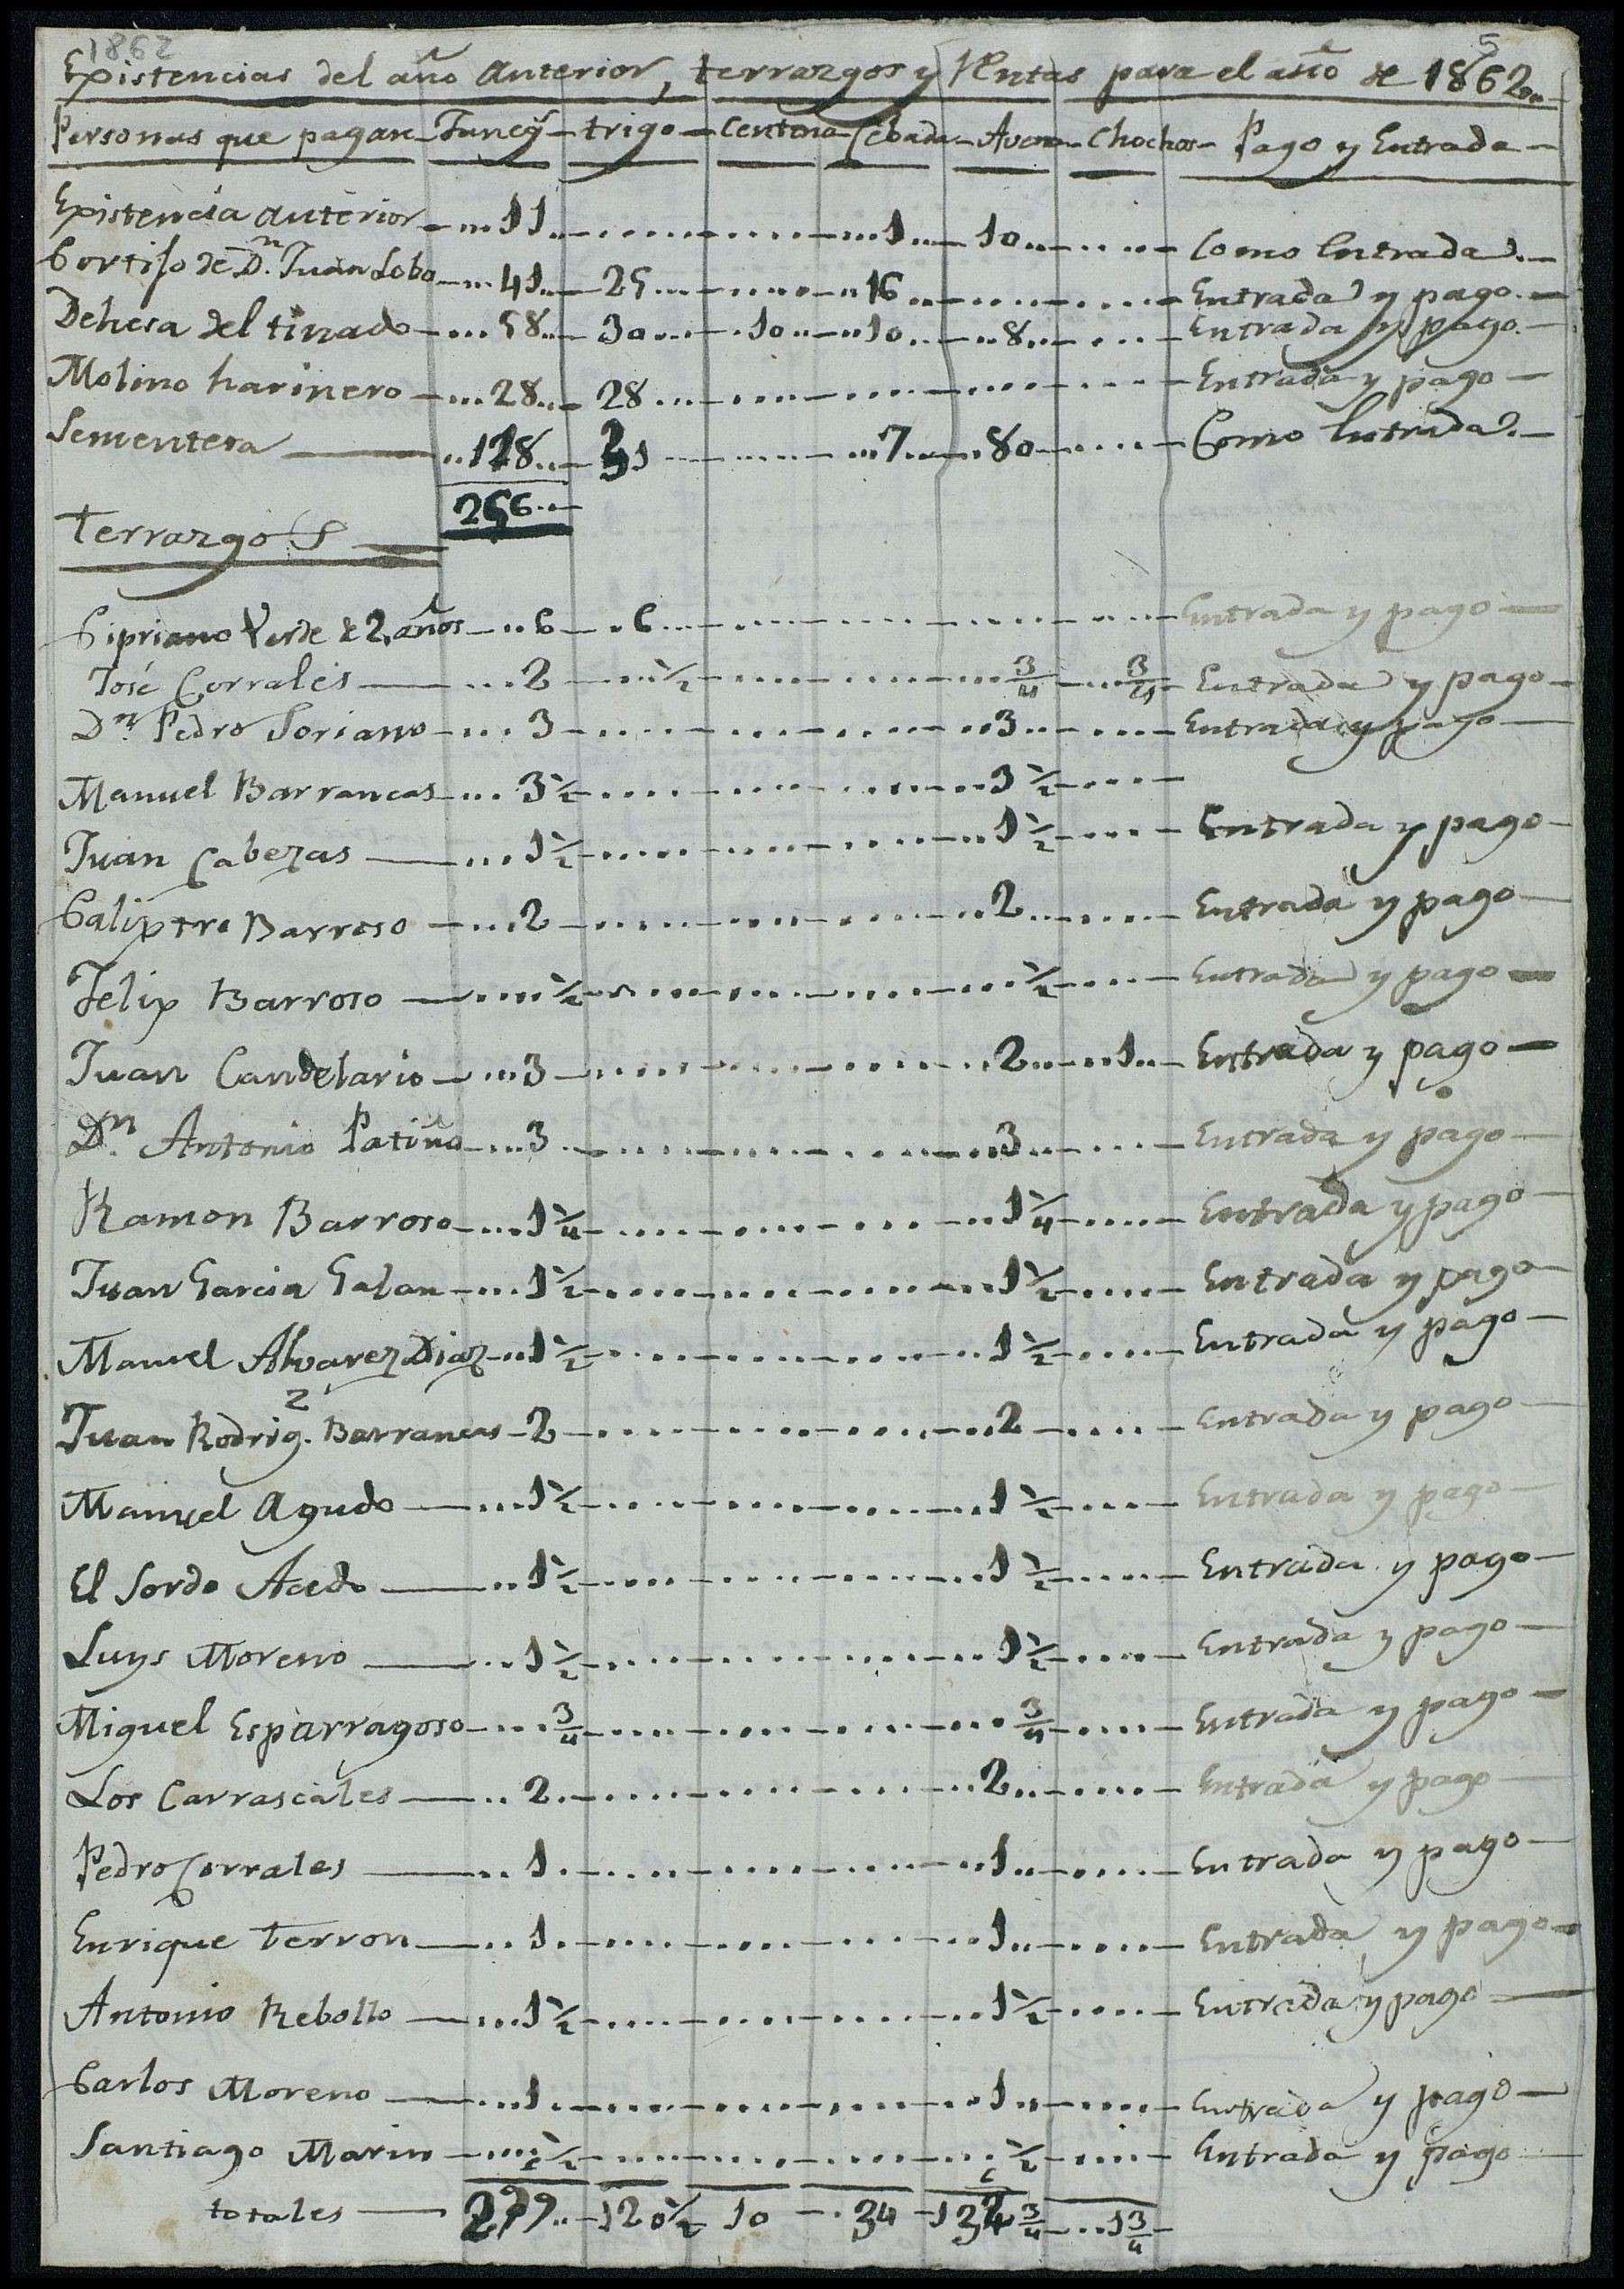 1862
5
Existencias del año anterior, terrazgos y Rentas para el año de 1862
Personas que pagan Faneg.s trigo Centeno Cebada Avena Chochos Pago y Entrada
Existencia anterior 11 1 10 Como Entrada
Cortijo de Dn. Juan Lobo 41 25 16 Entrada y pago
Dehesa del tinado 58 30 10 10 8 Entrada y pago
Molino harinero 28 28 Entrada y pago
Sementera 118 31 7 80 Como Entrada
256
Terrazgos
Cipriano Verde de 2 años 6 6 Entrada y pago
José Corrales 2 1/2 3/4 3/4 Entrada y pago
Dn. Pedro Soriano 3 3 Entrada y pago
Manuel Barrancas 3 1/2 3 1/2
Juan Cabezas 1 1/2 1 1/2 Entrada y pago
Calixtro Barroso 2 2 Entrada y pago
Felix Barroso 1/2 1/2 Entrada y pago
Juan Candelario 3 2 1 Entrada y pago
Dn. Antonio Patiño 3 3 Entrada y pago
Ramon Barroso 1 1/4 1 1/4 Entrada y pago
Juan Garcia Galan 1 1/2 1 1/2 Entrada y pago
Manuel Alvarez Diaz 1 1/2 1 1/2 Entrada y pago
Juan Rodrig.z Barrancas 2 2 Entrada y pago
Manuel Agudo 1 1/2 1 1/2 Entrada y pago
El Sordo Acedo 1 1/2 1 1/2 Entrada y pago
Luys Moreno 1 1/2 1 1/2 Entrada y pago
Miguel Esparragoso 3/4 3/4 Entrada y pago
Los Carrascales 2 2 Entrada y pago
Pedro Corrales 1 1 Entrada y pago
Enrique Terron 1 1 Entrada y pago
Antonio Rebollo 1 1/2 1 1/2 Entrada y pago
Carlos Moreno 1 1 Entrada y pago
Santiago Marin 1/2 1/2 Entrada y pago
totales 299 120 1/2 10 34 132 3/4 1 3/4